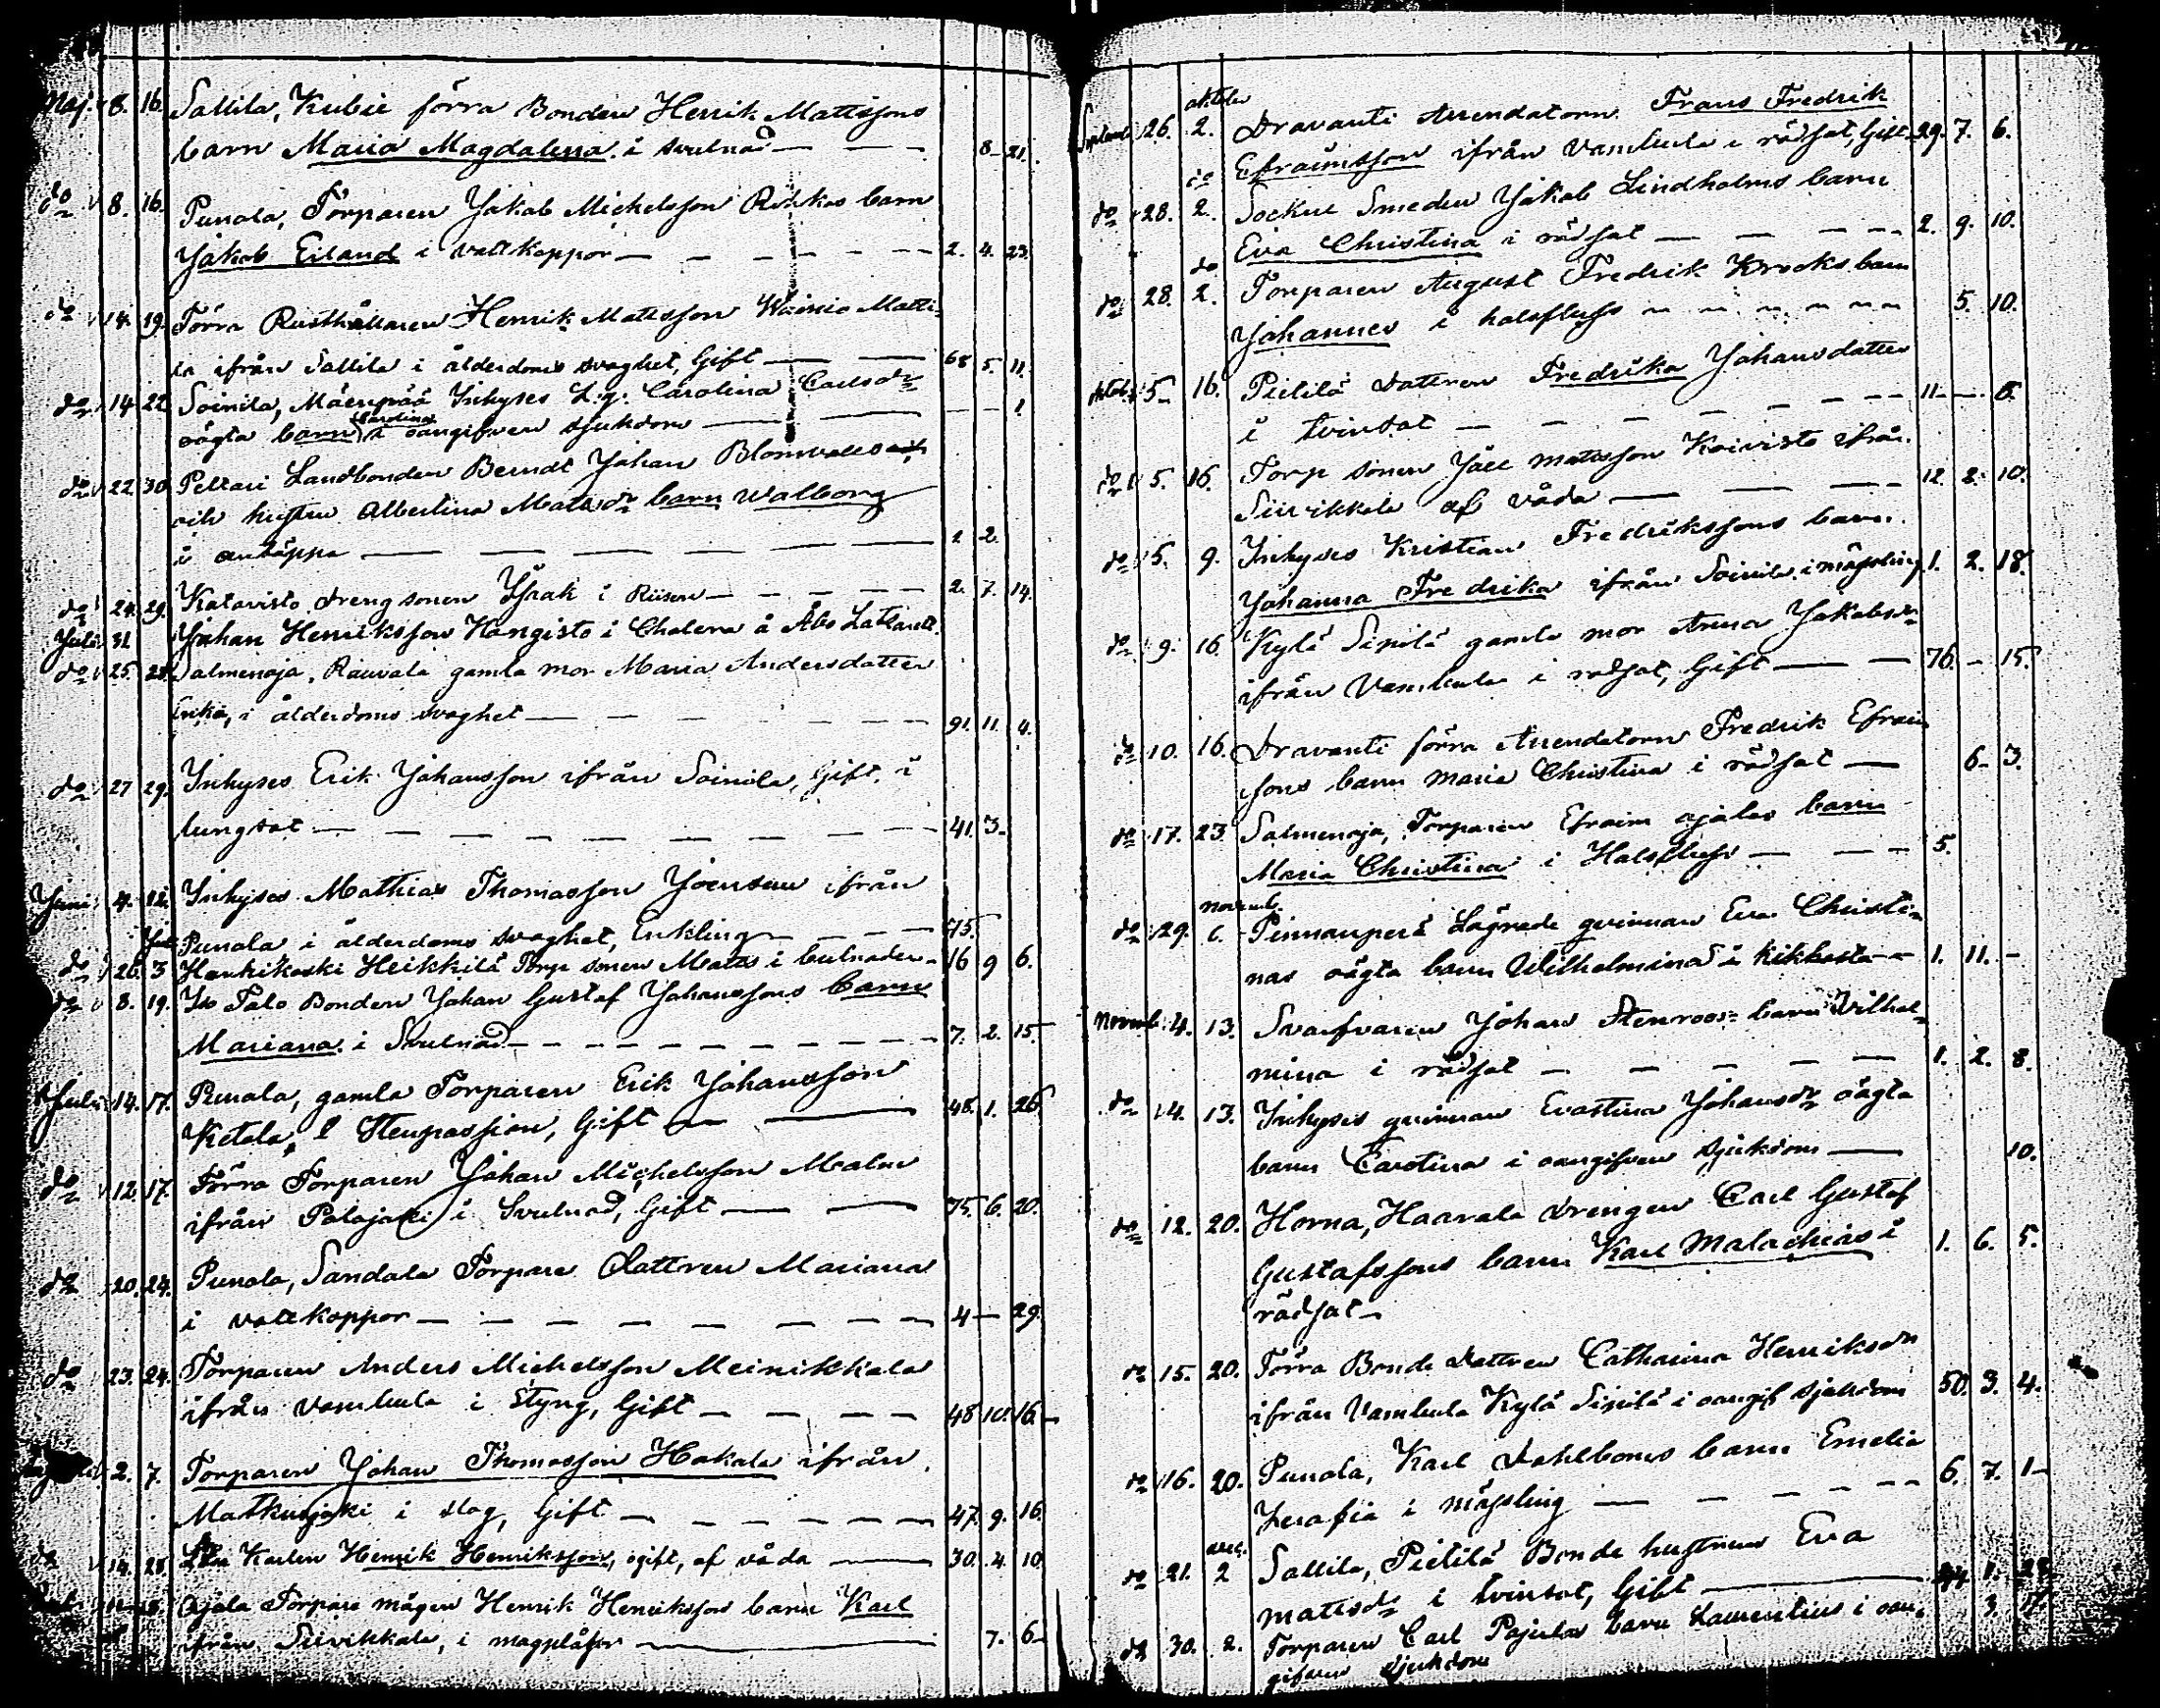 Maj. 8. 16. Sallila, Kubie förra Bonden Henrik Mattssons
barn Maria Magdalena i svulnad — 8. 21.
do 8. 16. Punola, Torparen Jakob Michelsson barn
Jakob Erland i vattkoppor — 2. 4. 23.
do 14. 19. Förra Rusthållaren Henrik Mattsson Wainio Matti-
la ifrån Sallila i ålderdoms svaghet, Gift — 68 5. 11.
do 14 22 Soinila, Mäenpää Inhyses Carolina Carlsdr
oägta barn Carolina i oangifven sjukdom — — — 1.
do 22 30 Peltari Landbonden Berndt Johan
och hustru Albertina Matsdr barn Walborg
i andtäppa — 1 2.
do 24. 29. Katavisto drengsonen Isaak i Risen — 2. 7. 14.
Juli 31 Johan Henriksson Kangisto i Cholera å Åbo Lattarett.
do 25. Salmenoja, Rauvala gamla mor Maria Andersdotter
Enka, i ålderdoms svaghet — 91. 11. 4.
do 27 29. Inhyses Erik Johansson ifrån Soinila, Gift, i
lungsot — 41. 3.
Juni 4. 12. Inhyses Mathias Thomasson ifrån
Juli Punola i ålderdoms svaghet, Enkling — 75.
do 26. 3 Hankikoski Heikkilä Torp sonen Matts i bulnader — 16 9 6.
do 8. 19. Iso Palo Bonden Johan Gustaf Johanssons barn
Mariana i Svulnad — 7. 2. 15.
Juli 14. 17. Punola, gamla Torparen Erik Johansson
Ketola, i Stenpassion, Gift — 48. 1. 26.
do 12 17. Förra Torparen Johan Michelsson Malm
ifrån Palojoki i Svulnad, Gift — 75. 6. 20.
do 20. 24. Punola, Sandala Torpare Dattren Mariana
i vattkoppor — 4 — 29.
do 23. 24. Torparen Anders Michelsson Meinikkala
ifrån Vambula i Styng, Gift — 48 10. 16.
2. 7. Torparen Johan Thomasson Hakala ifrån
Matkusjoki i slag, Gift — 47. 9. 16.
do 14. 28. Karlen Henrik Henriksson, ogift, af våda — 30. 4. 10
Ojala Torpare mågen Henrik Henriksson barn Karl
ifrån Sirvikkala, i magplågor — 7. 6
oktober
September 26. 2. Dravanti Arrendatorn Frans Fredrik
Efraimsson ifrån Vambula i rödsot, Gift 29. 7. 6.
do
do 28. 2. Socken Smeden Jakob Lindholms barn
Eva Christina i rödsot — 2. 9. 10.
do
do 28. 2. Torparen August Fredrik Krooks barn
Johannes i halsfluss — 5. 10.
Oktob. 5 16. Pietilä dattren Fredrika Johansdatter
i tvinsot — 11 — 6.
do 5. 16. Torp sonen Joel Mattsson Koivisto ifrån
Sirvikkala af våda — 12 2 10.
do 5. 9. Inhyses Kristian Fredrikssons barn
Johanna Fredrika ifrån Soinila i mässling 1. 2. 18.
do 9. 16. Kylä Sipilä gamla mor Anna Jakobsdr
ifrån Vambula i rödsot, Gift — 76. — 15.
do 10. 16. Dravanti förra Arrendatorn Fredrik Efraim
sons barn Maria Christina i rödsot — 6. 3.
do 17. 23 Salmenoja, Torparen Efraim Ojalas barn
Maria Christina i Halsfluss — 5.
novemb.
do 29. 6. Pinnanperä Lägrade qvinnan Eva Christi-
nas oägta barn Wilhelmina i kikhosta — 1. 11. —
Novemb. 4. 13. Svarfvaren Johan Stenroos barn Vilhel-
mina i rödsot — 1. 2. 8.
do 4. 13. Inhyses qvinnan Evastina Johansdr oägta
barn Carolina i oangifven sjukdom — 10.
do 12. 20. Horna, Haavala drengen Carl Gustaf
Gustafssons barn Karl Malachias i 1. 6. 5.
rödsot —
do 15. 20. Förra Bonde dattren Catharina Henriksdr
ifrån Vambula Kylä Sipilä i oangif sjukdom 50. 3. 4.
do 16. 20. Punola, Karl Dahlboms barn Emelia
Serafia i mässling — 6. 7. 1
dec.
do 21. 2 Sallila, Pietilä Bonde hustrun Eva
Mattsdr i tvinsot, Gift — 44 1. 28.
do 30. 2. Torparen Carl Pajulas barn Laurentius i oan- 3. 17.
gifven sjukdom